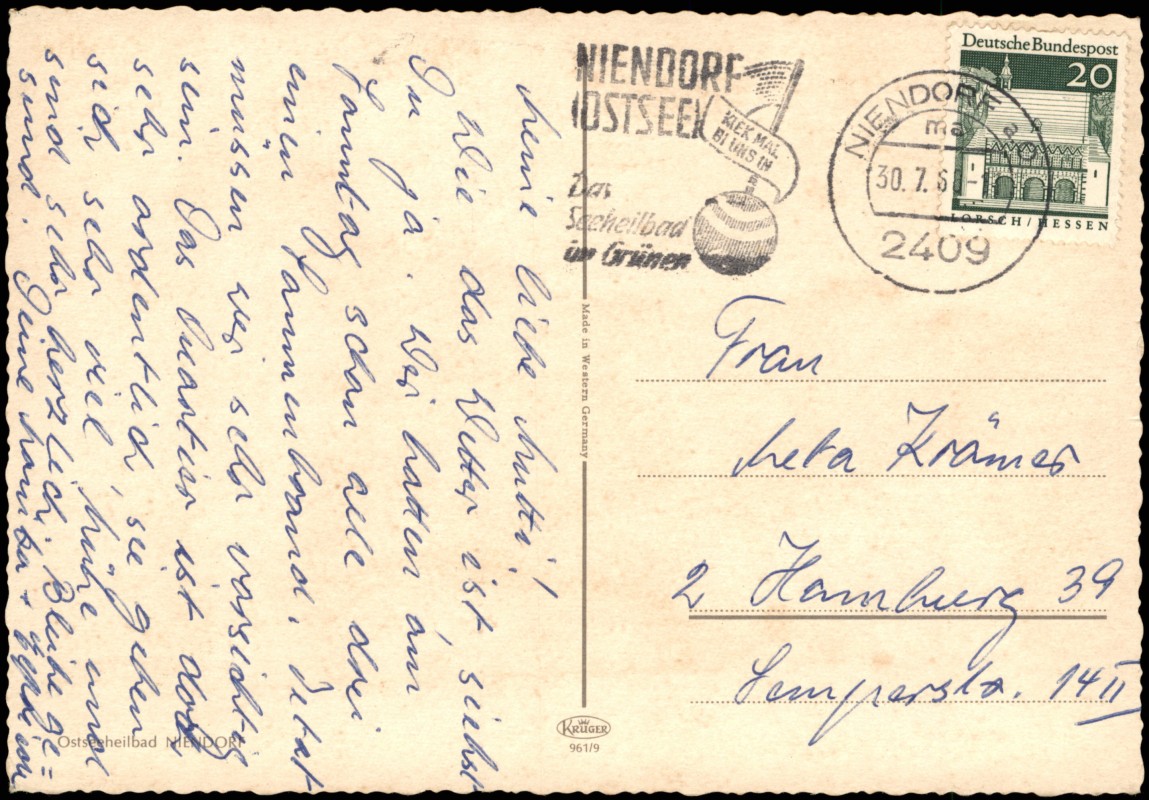 Meine liebe Mutti!
Wie das Wetter ist siehst
Du ja. Wir hatten am
Sonntag schon alle drei
einen Sonnenbrand. Jetzt
müssen wir sehr vorsichtig
sein. Das Quartier ist doch
sehr ordentlich sie geben
sich sehr viel Mühe und
sind sehr herzlich. Bleibe ge=
sund. Deine
NIENDORF
OSTSEE
KIEK MAL
BI UNS IN
Das
Seeheilbad
im Grünen
NIENDORF
30. 7. 6
2409
Deutsche Bundespost
20
LORSCH/HESSEN
Made in Western Germany
Frau
Meta Krämer
2 Hamburg 39
Semperstr. 14 II
Ostseeheilbad NIENDORF
KRÜGER
961/9